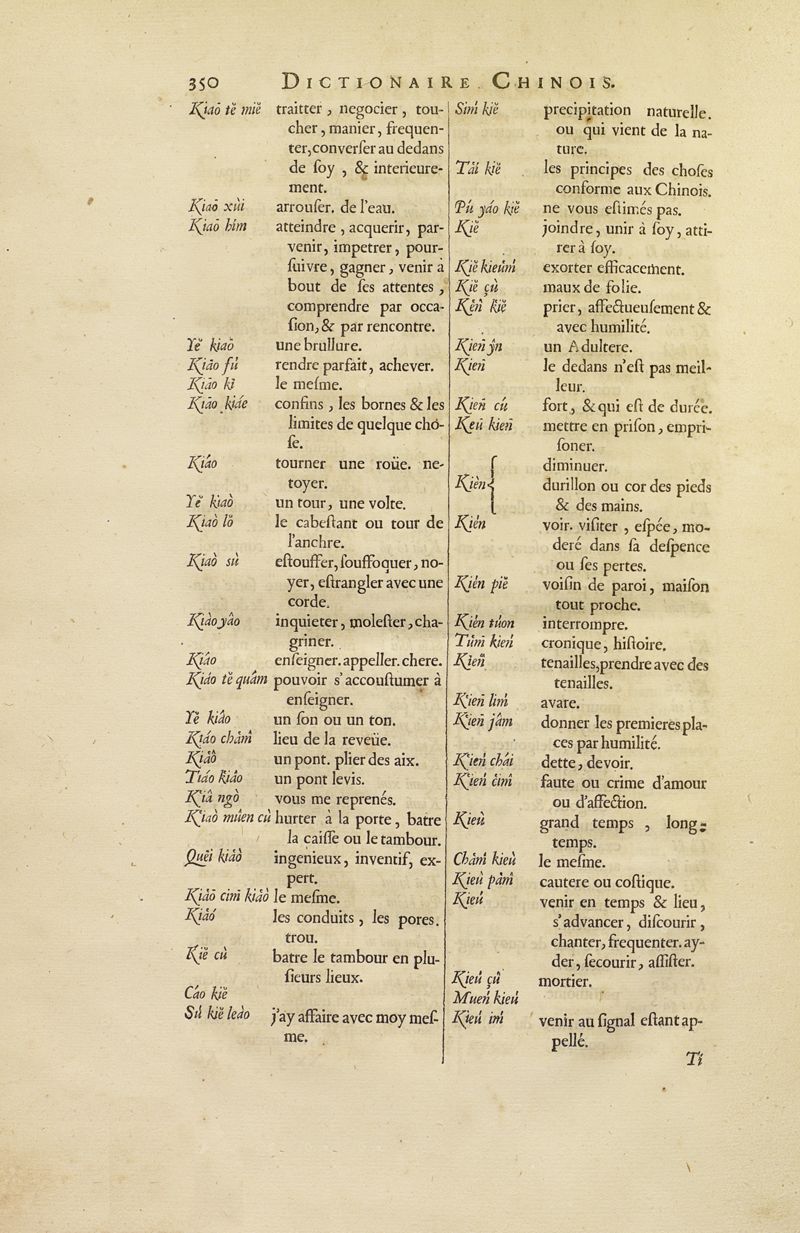 350 DICTIONAIRE CHINOIS.
Kiaŏ tĕ miĕ traitter, negocier, tou-
cher, manier, frequen-
ter, converſer au dedans
de ſoy, & interieure-
ment.
Kiaŏ xùi arrouſer. de l'eau.
Kiaŏ him atteindre, acquerir, par-
venir, impetrer, pour-
ſuivre, gagner, venir à
bout de ſes attentes,
comprendre par occa-
ſion, & par rencontre.
Yĕ kiaŏ une brullure.
Kiâo fú rendre parfait, achever.
Kiâo kì le meſme.
Kiâo kiáe confins, les bornes & les
limites de quelque chó-
ſe.
Kiâo tourner une roüe. ne-
toyer.
Yĕ kiaò un tour, une volte.
Kiaò lŏ le cabeſtant ou tour de
l'anchre.
Kiaò sù eſtouffer, ſouffoquer, no-
yer, eſtrangler avec une
corde.
Kiào yâo inquieter, moleſter, cha-
griner.
Kiâo enſeigner. appeller. chere.
Kiáo tĕ quám pouvoir s'accouſtumer à
enſeigner.
Yĕ kiâo un ſon ou un ton.
Kiáo châm̀ lieu de la reveüe.
Kiâŏ un pont. plier des aix.
Tiáo kiâo un pont levis.
Kʿiâ ngò vous me reprenés.
Kʿiaò mûen cù hurter à la porte, batre
la caiſſe ou le tambour.
Quĕi kiàò ingenieux, inventif, ex-
pert.
Kiàŏ cim̀ kiàò le meſme.
Kiáó les conduits, les pores.
trou.
Kĭĕ cù batre le tambour en plu-
ſieurs lieux.
Cáo kiĕ
Sú kiĕ leào j'ay affaire avec moy meſ-
me.
Sim̀ kiĕ precipitation naturelle.
ou qui vient de la na-
ture.
Táí kiĕ les principes des choſes
conforme aux Chinois.
Pú yáo kiĕ ne vous eſtimés pas.
Kiĕ joindre, unir à ſoy, atti-
rer à ſoy.
Kiĕ kieúm̀ exorter efficacement.
Kiĕ çù maux de folie.
Kĕn̈ kiĕ prier, affectueuſement &
avec humilité.
Kien̄ ŷn un Adultere.
Kien̄ le dedans n'eſt pas meil-
leur.
Kien̄ cú fort, & qui eſt de durée.
Keú kien̄ mettre en priſon, empri-
ſoner.
diminuer.
Kièn durillon ou cor des pieds
& des mains.
Kién voir. viſiter, eſpée, mo-
deré dans ſa deſpence
ou ſes pertes.
Kién piĕ voiſin de paroi, maiſon
tout proche.
Kién tùon interrompre.
Túm̀ kien̂ cronique, hiſtoire.
Kien̄ tenailles, prendre avec des
tenailles.
Kʿien̄ lim̀ avare.
Kʿien̄ jâm donner les premieres pla-
ces par humilité.
Kʿien̂ chái dette, devoir.
Kʿien̂ çim̂ faute ou crime d'amour
ou d'affection.
Kieù grand temps, long-
temps.
Châm̀ kieù le meſme.
Kieù pám̀ cautere ou coſtique.
Kieú venir en temps & lieu,
s'advancer, diſcourir,
chanter, frequenter. ay-
der, ſecourir, aſſiſter.
Kieú çú mortier.
Muen̂ kieú
Kieú im̀ venir au ſignal eſtant ap-
pellé.
Ti